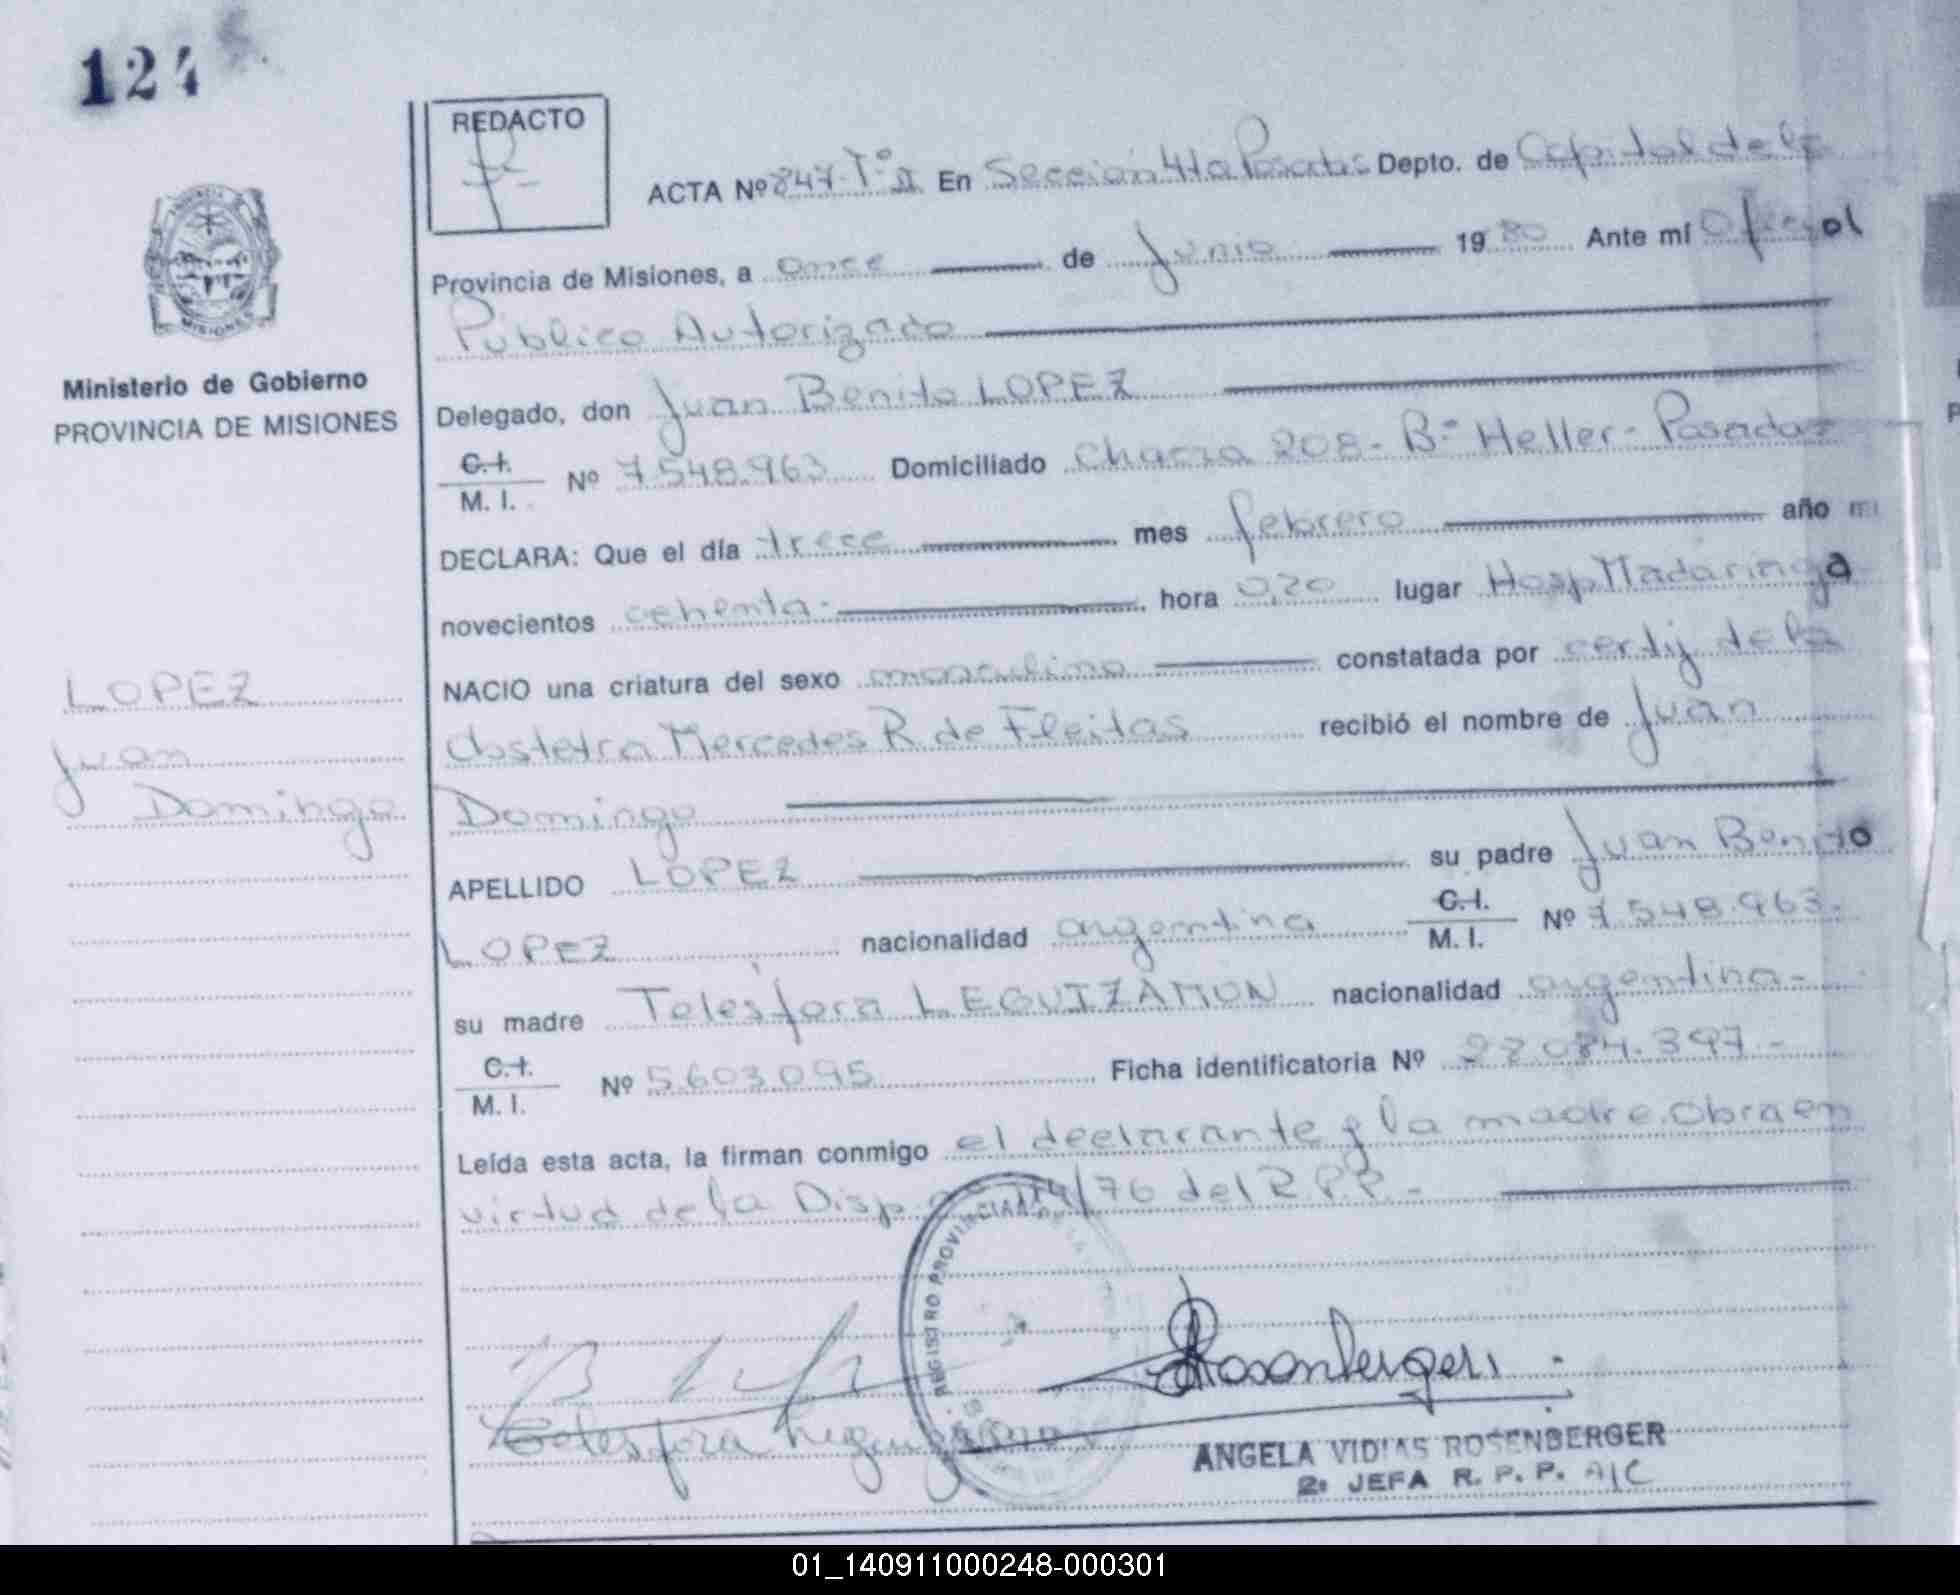 124
REDACTO
ACTA Nº 847-Tº II En Sección 4ta Posadas Depto. de Capital de la
Provincia de Misiones, a once de Junio 1980 Ante mí Oficial
Público Autorizado
Delegado, don Juan Benito LOPEZ
C.I. / M. I. Nº 7.548.963 Domiciliado Chacra 208 - Bº Heller - Posadas
DECLARA: Que el día trece mes febrero año mi
novecientos ochenta - hora 0,20 lugar Hosp Madariaga
NACIO una criatura del sexo masculino constatada por certif de la
Obstetra Mercedes R de Fleitas recibió el nombre de Juan
Domingo
APELLIDO LOPEZ su padre Juan Benito
LOPEZ nacionalidad argentina C.I. / M. I. Nº 7.548.963-
su madre Telesfora LEGUIZAMON nacionalidad argentina-
C.I. / M. I. Nº 5.603.095 Ficha identificatoria Nº 27.084.397-
Leída esta acta, la firman conmigo el declarante y la madre. Obra en
virtud de la Disp /76 del R.P.P.-
PROVINCIA
MISIONES
Ministerio de Gobierno
PROVINCIA DE MISIONES
LOPEZ
Juan
Domingo
REGISTRO PROVINCIAL DE LAS
Telesfora Leguizamon
Rosenberger
ANGELA VIDIAS ROSENBERGER
2ª JEFA R. P. P. A/C
01_140911000248-000301